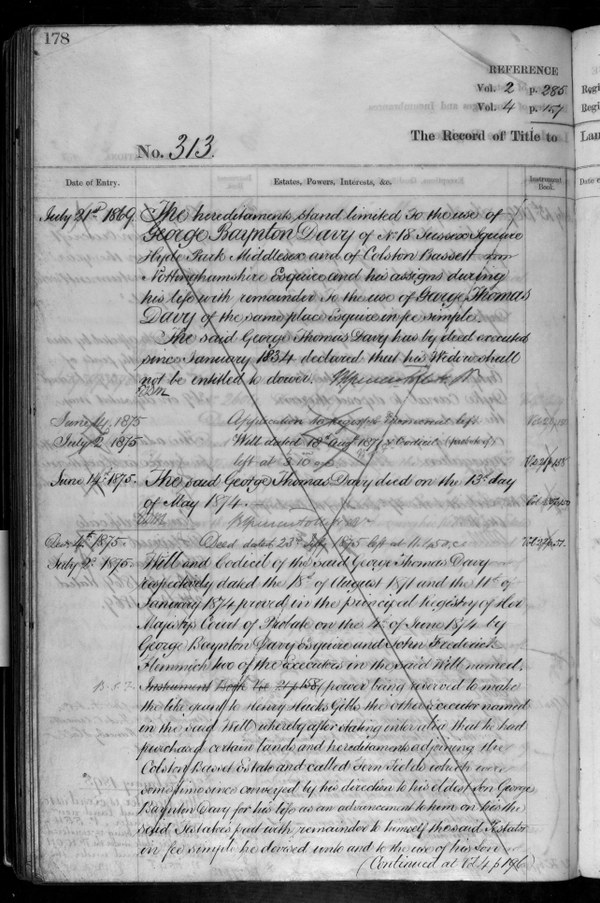 178
REFERENCE
Vol. 2 p. 285
Vol. 4 p. 157
The Record of Title to
No. 313.
Date of Entry.
Estates, Powers, Interests, &c.
Instrument Book.
July 21st 1869. The hereditaments stand limited To the use of
George Baynton Davy of No 18 Sussex Square
Hyde Park Middlesex and of Colston Bassett
Nottinghamshire Esquire and his assigns during
his life with remainder To the use of George Thomas
Davy of the same place Esquire in fee simple.
The said George Thomas Davy has by deed executed
since January 1834 declared that his Widow shall
not be entitled to dower.
June 14 1875 Application to register left
July 2d 1875 Will dated 18th Aug 1871 & Codicil
left at
June 14th 1875. The said George Thomas Davy died on the 13th day
of May 1874.
Dec 4th 1875 Deed dated 23rd 1875 left at
July 2d 1875. Will and Codicil of the said George Thomas Davy
respectively dated the 18th of August 1871 and the 11th of
January 1874 proved in the principal Registry of Her
Majesty's Court of Probate on the 4th of June 1874 by
George Baynton Davy Esquire and John Frederick
Flemmich two of the Executors in the said Will named
Instrument Book Vol 2 p 158 (power being reserved to make
the like grant to Henry Hucks Gibbs the other executor named
in the said Will) whereby after stating inter alia that he had
purchased certain lands and hereditaments adjoining the
Colston Basset Estate and called Fern Fields which were
some time since conveyed by his direction to his eldest son George
Baynton Davy for his life as an advancement to him on his the
said Testators part with remainder to himself the said Testator
in fee simple he devised unto and to the use of his son
(Continued at Vol 4 p 196)
Land
Date of